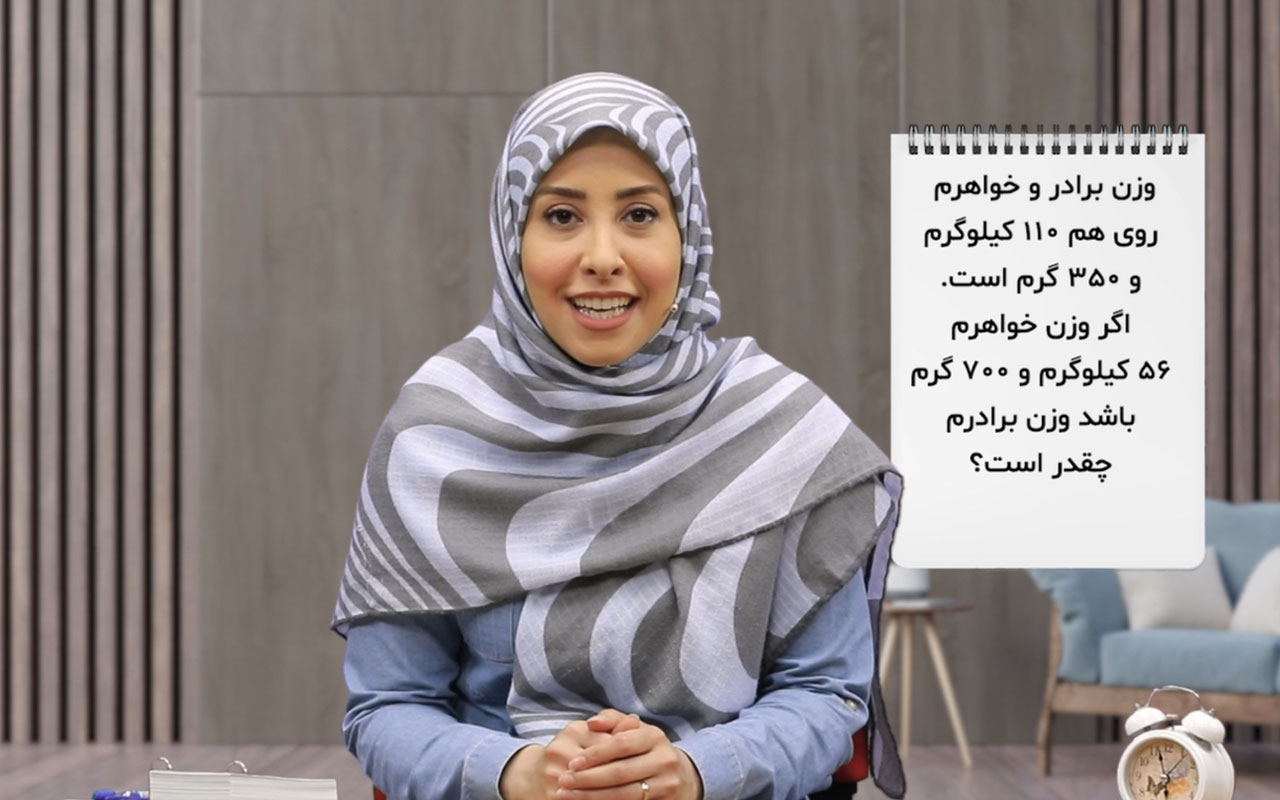 وزن برادر و خواهرم
روی هم ۱۱۰ کیلوگرم
و ۳۵۰ گرم است.
اگر وزن خواهرم
۵۶ کیلوگرم و ۷۰۰ گرم
باشد وزن برادرم
چقدر است؟